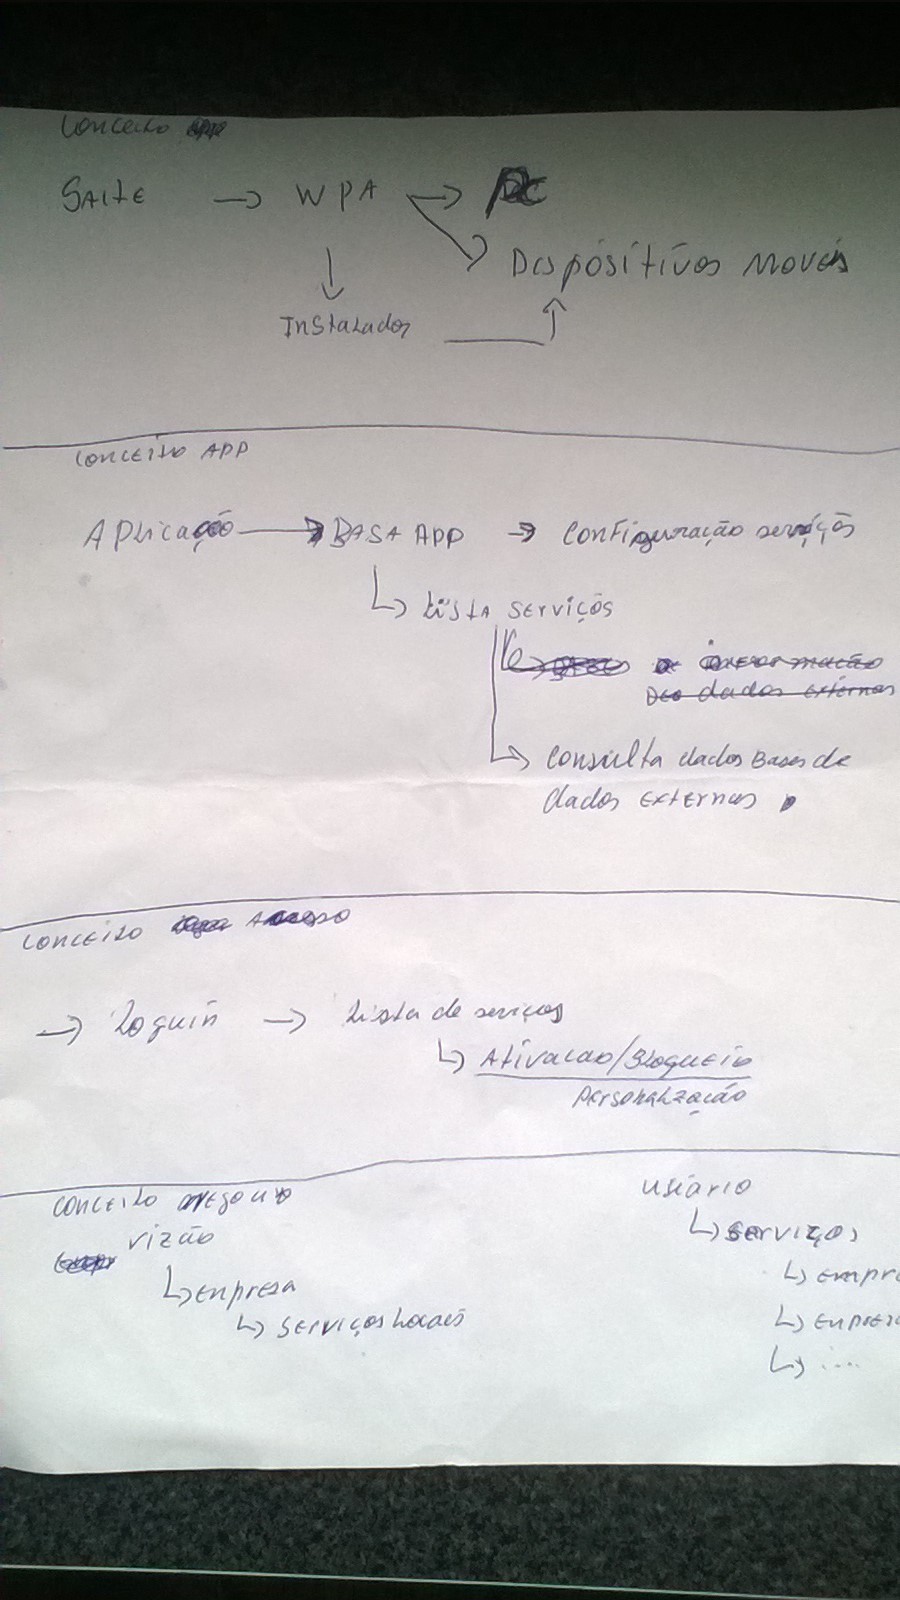 Conceito
SAITE → WPA → PC
Dispósitivos Moveis
Instalados
Conceito APP
Aplicação → BASA APP → Configuração serviços
↳ Lista serviços
informação
dados externos
↳ Consulta dados Bases de
dados externas
Conceito Acesso
→ Loguin → Lista de serviços
↳ Ativacao/Bloqueio
Personalização
Conceito negocio
vizão
↳ Enpresa
↳ Serviços Locais
usúario
↳ serviços
↳ empre
↳ enpres
↳ ....